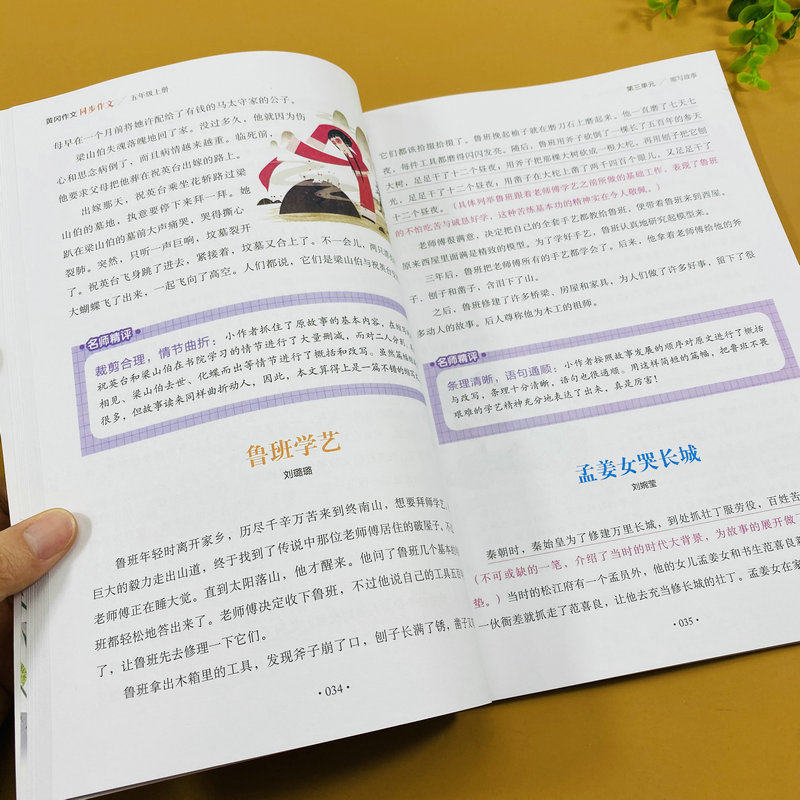 黄冈作文 同步作文 / 五年级上册
母早在一个月前将她许配给了有钱的马太守家的公子。
梁山伯失魂落魄地回了家。没过多久，他就因为伤
心和思念病倒了，而且病情越来越重。临死前，
他要求父母把他葬在祝英台出嫁的路上。
出嫁那天，祝英台乘坐花轿路过梁
山伯的墓地，执意要停下来拜一拜。她
趴在梁山伯的墓前大声痛哭，哭得撕心
裂肺。突然，只听一声巨响，坟墓裂开
了。祝英台飞身跳了进去，紧接着，坟墓又合上了。不一会儿，两只
大蝴蝶飞了出来，一起飞向了高空。人们都说，它们是梁山伯与祝英台
名师精评
裁剪合理，情节曲折：小作者抓住了原故事的基本内容，在
祝英台和梁山伯在书院学习的情节进行了大量删减，而对二人分
相见、梁山伯去世、化蝶而出等情节进行了概括和改写。虽然篇幅
很多，但故事读来同样曲折动人，因此，本文算得上是一篇不错的缩写
鲁班学艺
刘璐璐
鲁班年轻时离开家乡，历尽千辛万苦来到终南山，想要拜师学艺
巨大的毅力走出山道，终于找到了传说中那位老师傅居住的破屋子。不
老师傅正在睡大觉。直到太阳落山，他才醒来。他问了鲁班几个基本的
班都轻松地答出来了。老师傅决定收下鲁班，不过他说自己的工具五百
了，让鲁班先去修理一下它们。
鲁班拿出木箱里的工具，发现斧子崩了口，刨子长满了锈，凿子又
·034·
第三单元 / 缩写故事
它们都该拾掇拾掇了。鲁班挽起袖子就在磨刀石上磨起来。他一直磨了七天七
夜，每件工具都磨得闪闪发亮。随后，鲁班用斧子砍倒了一棵长了五百年的参天
大树，足足干了十二个昼夜，用斧子把那棵大树砍成一根大柁，再用刨子把它刨
光，足足干了十二个昼夜，用凿子在大柁上凿了两千四百个眼儿，又足足干了
十二个昼夜。（具体列举鲁班跟着老师傅学艺之前所做的基础工作，表现了鲁班
的不怕吃苦与诚恳好学，这种苦练基本功的精神实在令人敬佩。）
老师傅很满意，决定把自己的全套手艺都教给鲁班，便带着鲁班来到西屋。
原来西屋里面满是精致的模型。为了学好手艺，鲁班认真地研究起模型来。
三年后，鲁班把老师傅所有的手艺都学会了。后来，他拿着老师傅给他的斧
子、刨子和凿子，含泪下了山。
之后，鲁班修建了许多桥梁、房屋和家具，为人们做了许多好事，留下了很
多动人的故事。后人尊称他为木工的祖师。
名师精评
条理清晰，语句通顺：小作者按照故事发展的顺序对原文进行了概括
与改写，条理十分清晰，语句也很通顺。用这样简短的篇幅，把鲁班不畏
艰难的学艺精神充分地表达了出来，真是厉害！
孟姜女哭长城
刘婉莹
秦朝时，秦始皇为了修建万里长城，到处抓壮丁服劳役，百姓苦
（不可或缺的一笔，介绍了当时的时代大背景，为故事的展开做了
垫。）当时的松江府有一个孟员外，他的女儿孟姜女和书生范喜良
一伙衙差就抓走了范喜良，让他去充当修长城的壮丁。孟姜女在家
·035·